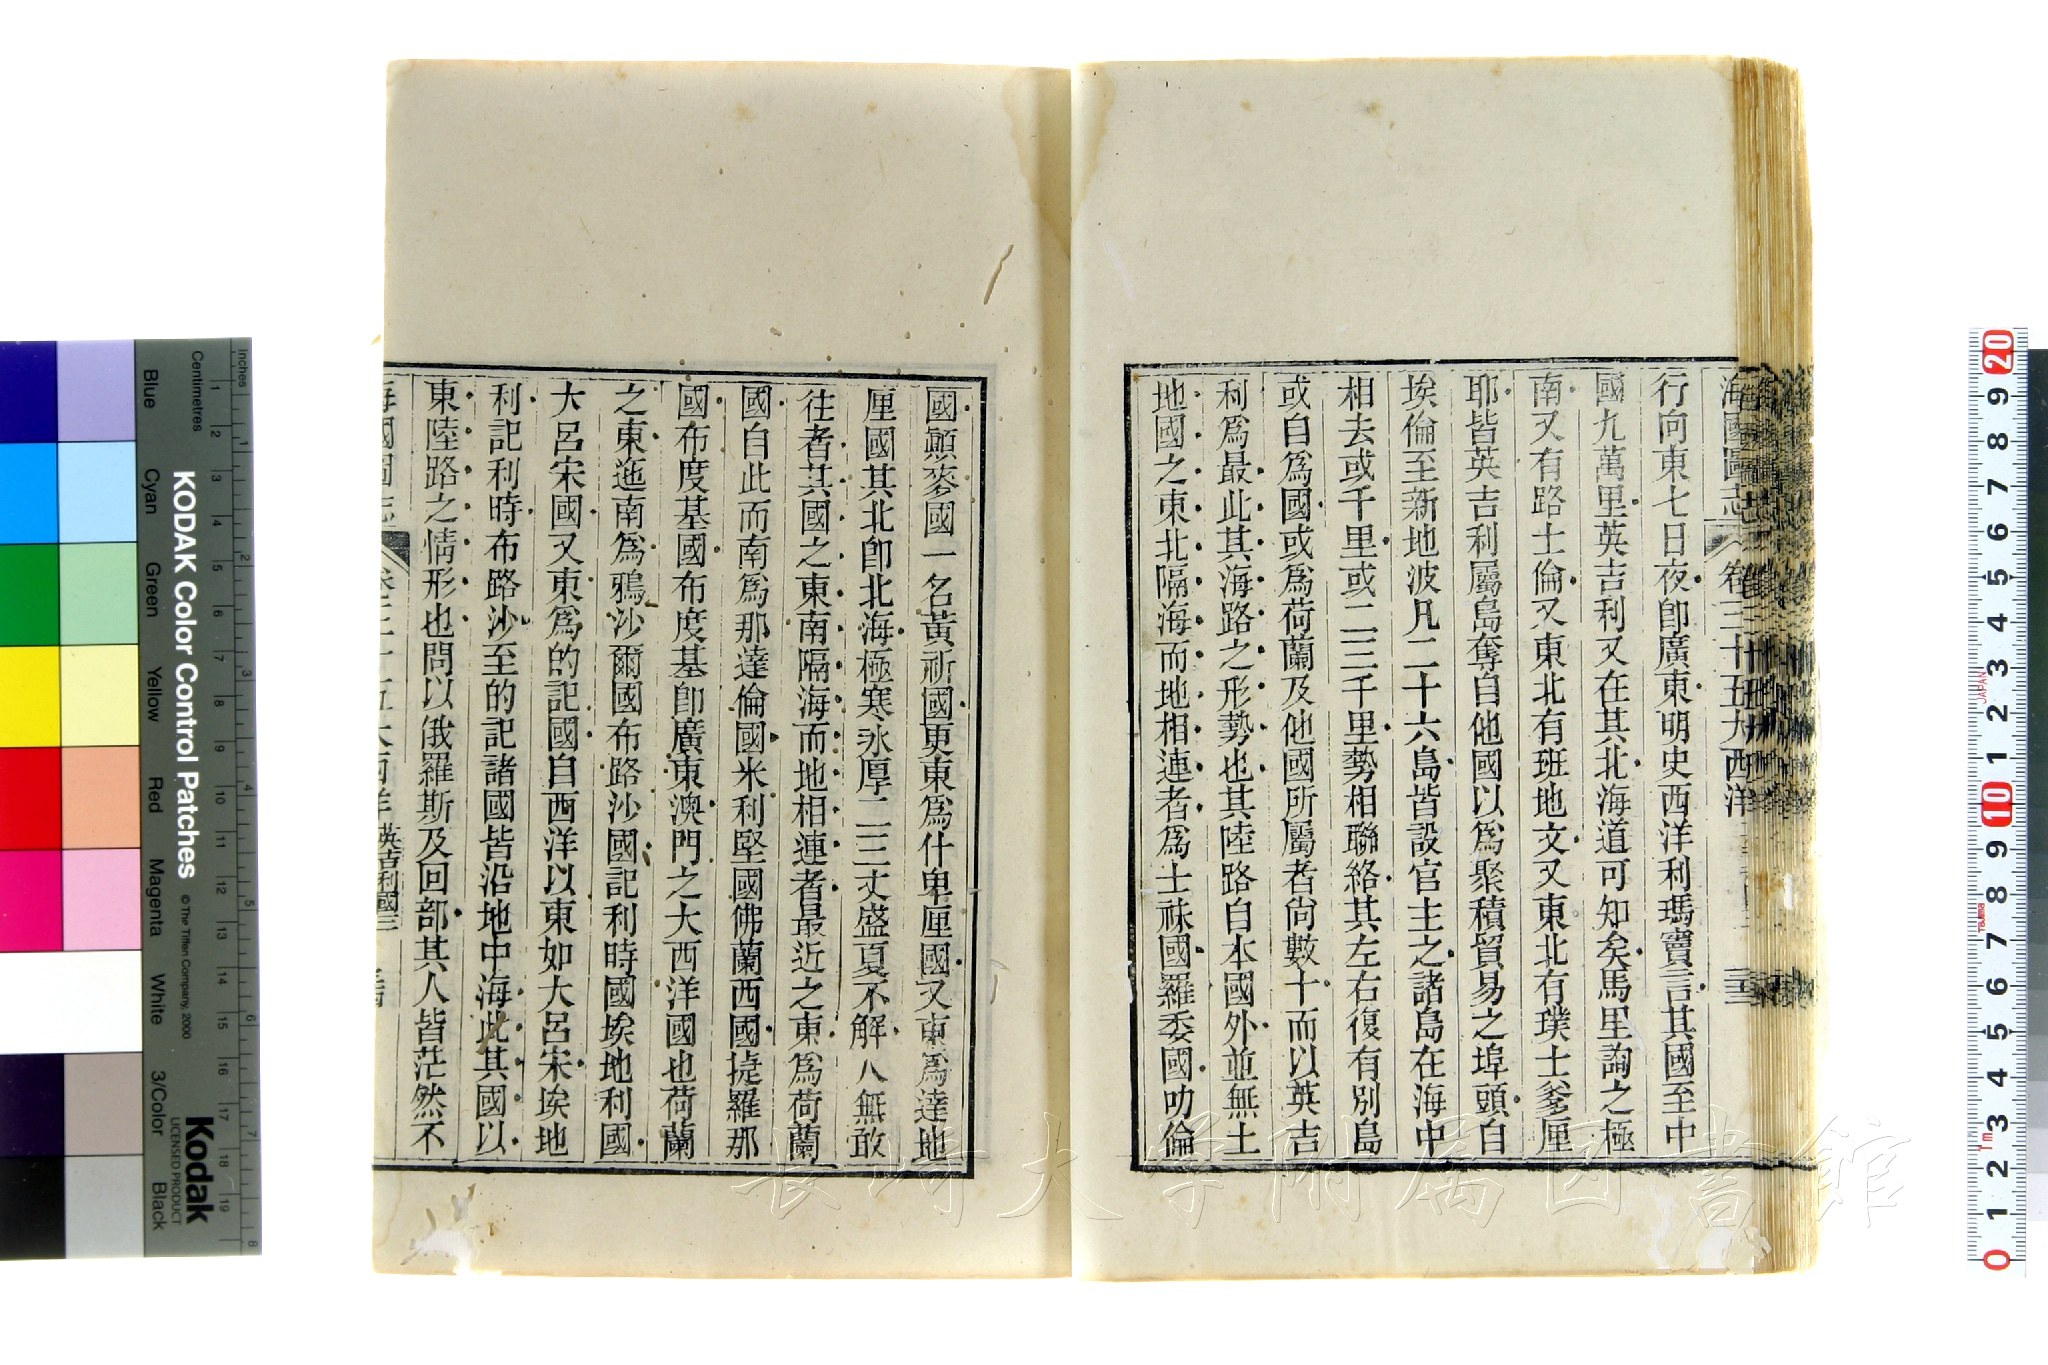 海國圖志 卷三十五大西洋
行向東七日夜卽廣東明史西洋利瑪竇言其國至中
國九萬里英吉利又在其北海道可知矣馬里詢之極
南又有路士倫又東北有班地文又東北有璞士爹厘
耶皆英吉利屬島奪自他國以爲聚積貿易之埠頭自
埃倫至新地波凡二十六島皆設官主之諸島在海中
相去或千里或二三千里勢相聯絡其左右復有別島
或自爲國或爲荷蘭及他國所屬者尙數十而以英吉
利爲最此其海路之形勢也其陸路自本國外並無土
地國之東北隔海而地相連者爲士祩國羅委國叻倫
國顛麥國一名黃祈國更東爲什卑厘國又東爲達地
厘國其北卽北海極寒冰厚二三丈盛夏不解人無敢
往者其國之東南隔海而地相連者最近之東爲荷蘭
國自此而南爲那達倫國米利堅國佛蘭西國㨗羅那
國布度基國布度基卽廣東澳門之大西洋國也荷蘭
之東迤南爲鴉沙爾國布路沙國記利時國埃地利國
大呂宋國又東爲的記國自西洋以東如大呂宋埃地
利記利時布路沙至的記諸國皆沿地中海此其國以
東陸路之情形也問以俄羅斯及回部其人皆茫然不
海國圖志 卷三十五大西洋 英吉利國三
KODAK Color Control Patches
© The Tiffen Company, 2000
Kodak
LICENSED PRODUCT
Inches
Centimetres
Blue
Cyan
Green
Yellow
Red
Magenta
White
3/Color
Black
長崎大学附属図書館
JAPAN